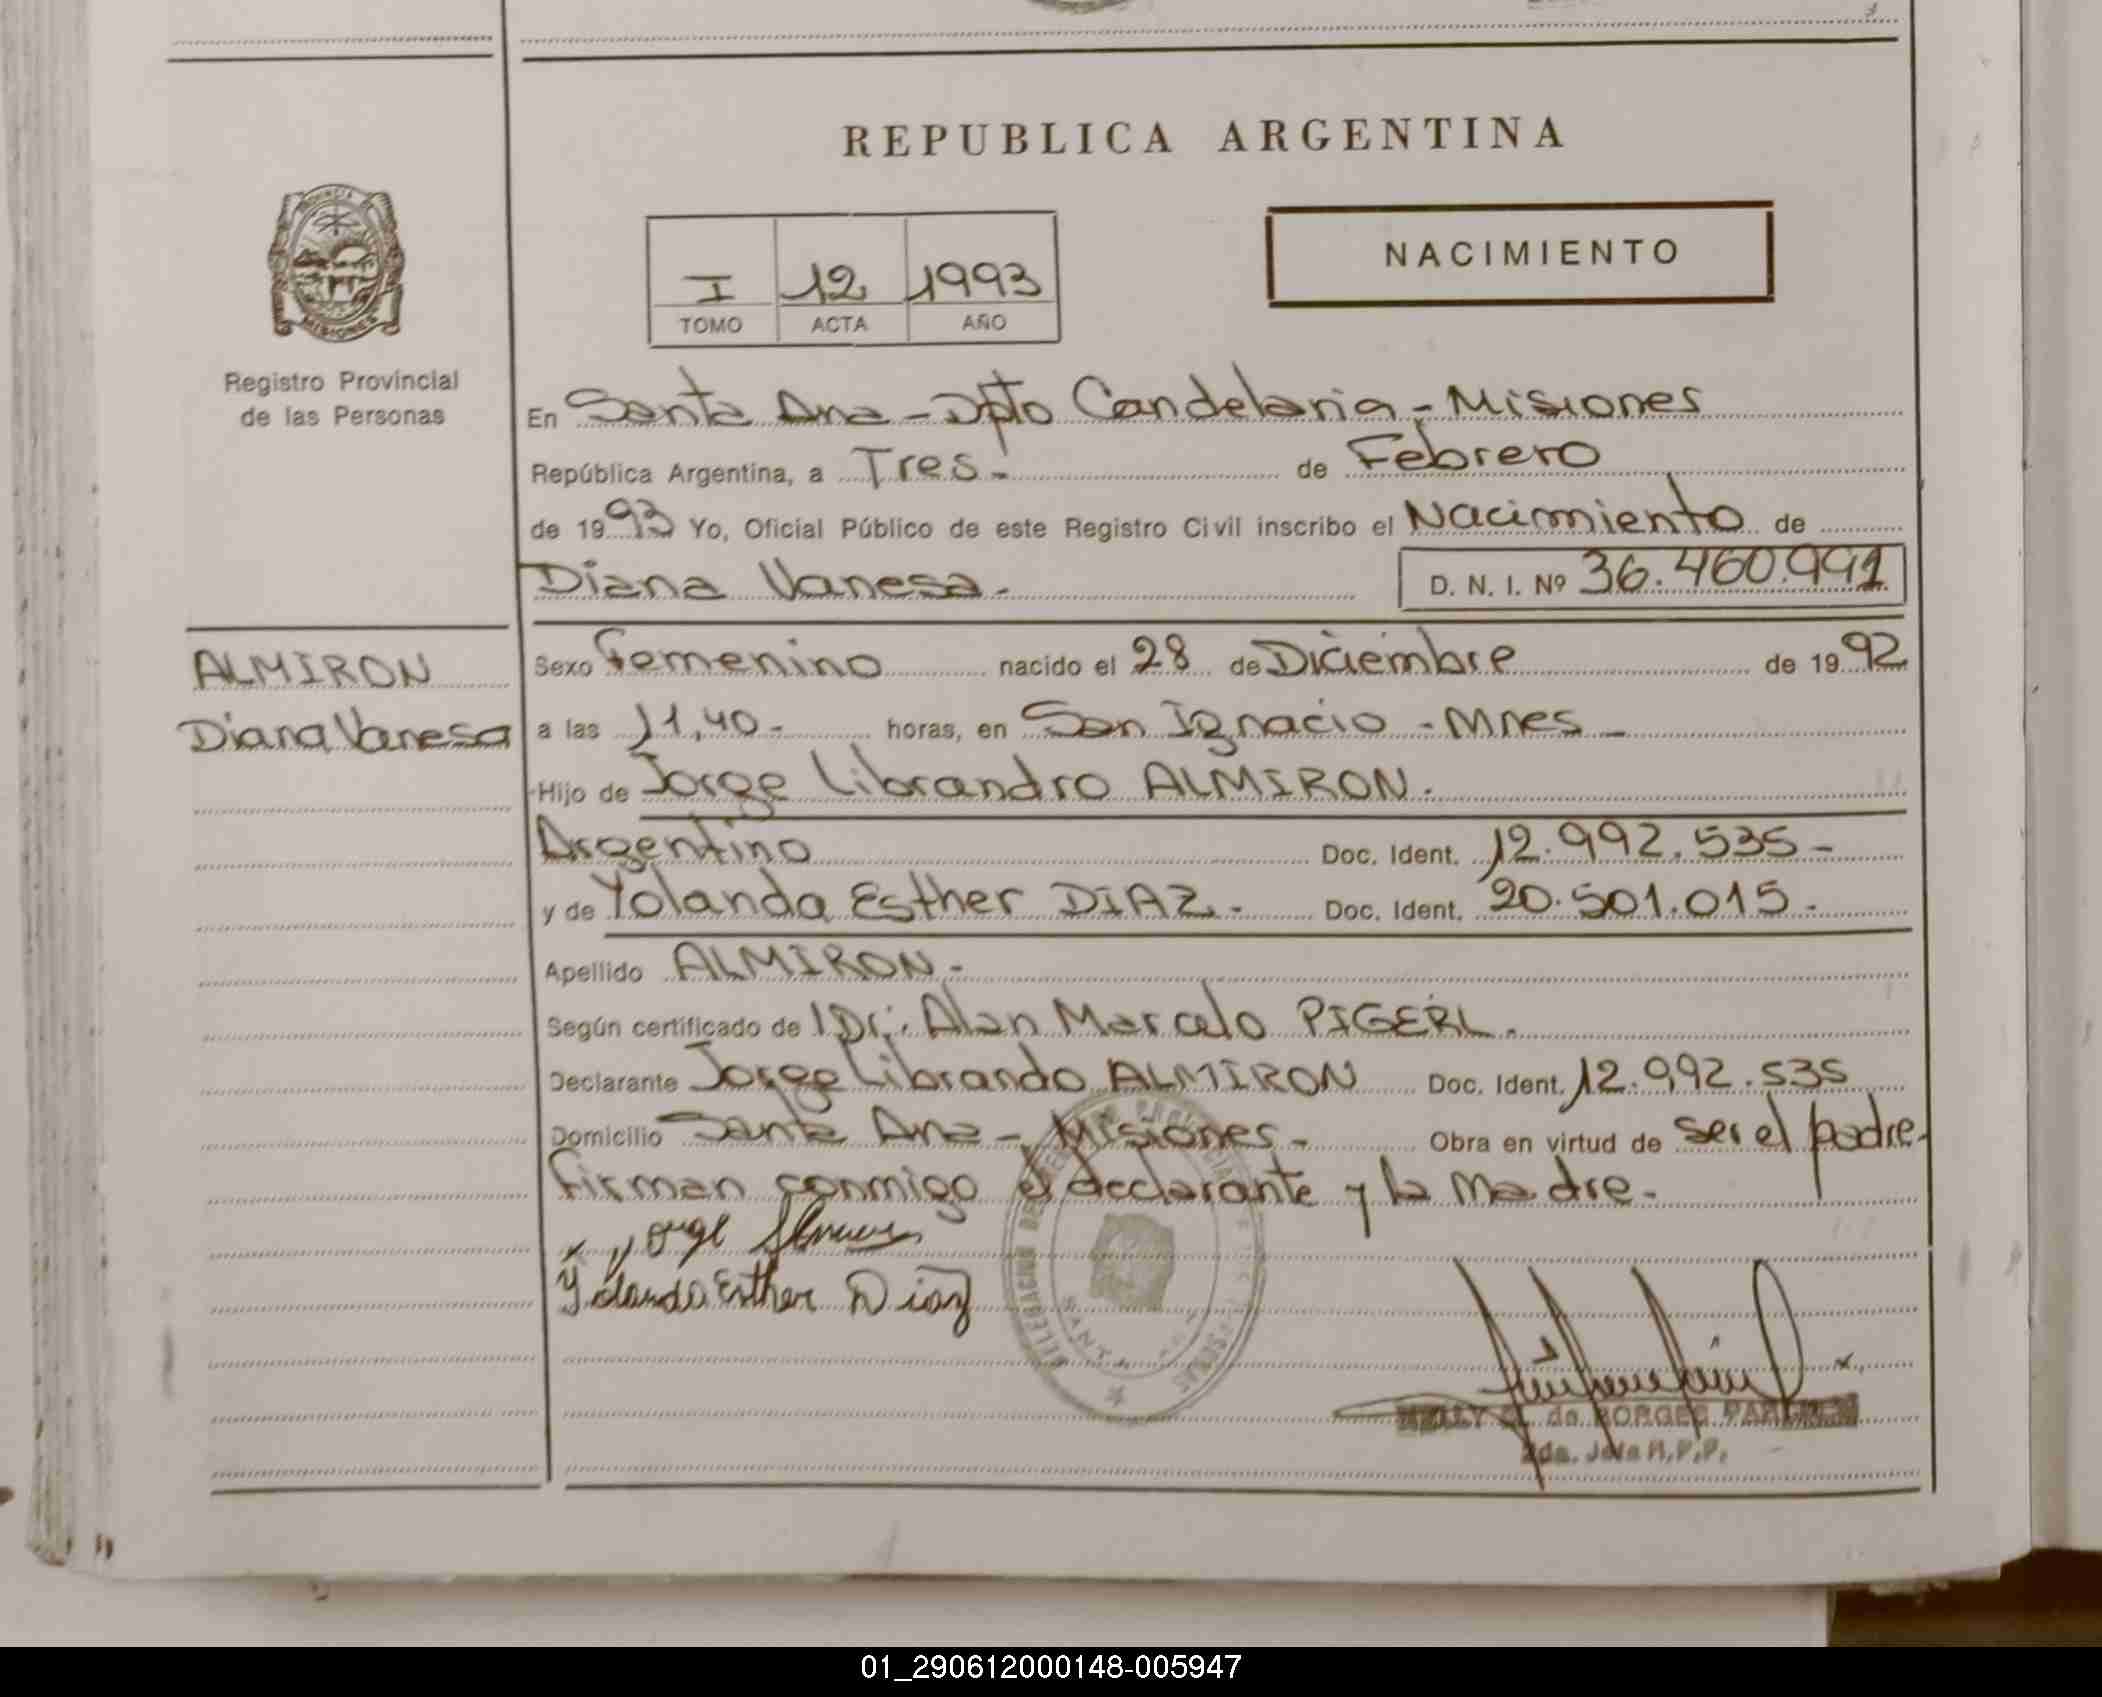 REPUBLICA ARGENTINA
NACIMIENTO
I 12 1993
TOMO ACTA AÑO
MISIONES
Registro Provincial
de las Personas
En Santa Ana - Dpto Candelaria - Misiones
República Argentina, a Tres.- de Febrero
de 1993 Yo, Oficial Público de este Registro Civil inscribo el Nacimiento de
Diana Vanesa.- D. N. I. Nº 36.460.991
ALMIRON
Diana Vanesa
Sexo Femenino nacido el 28 de Diciembre de 1992
a las 11,40.- horas, en San Ignacio - Mnes -
Hijo de Jorge Librandro ALMIRON.
Argentino Doc. Ident. 12.992.535 -
y de Yolanda Esther DIAZ.- Doc. Ident. 20.501.015.-
Apellido ALMIRON -
Según certificado de l Dr. Alan Marcelo PIGERL.
Declarante Jorge Librando ALMIRON Doc. Ident. 12.992.535
Domicilio Santa Ana - Misiones - Obra en virtud de ser el padre-
firman conmigo el declarante y la Madre.-
x Jorge
Yolanda Esther Diaz
SANTA ANA
de BORGES
2da. Jefe R.P.P.
01_290612000148-005947